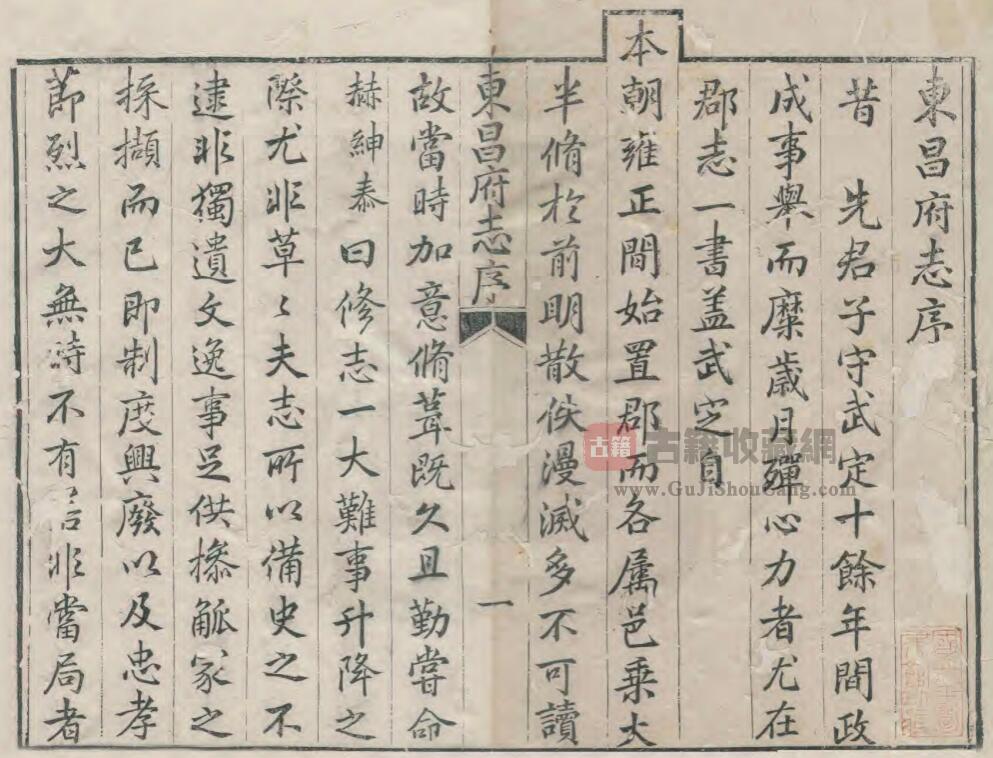 東昌府志序
昔　先君子守武定十餘年間政
成事舉而糜歲月殫心力者尤在
郡志一書盖武定自
本朝雍正間始置郡而各属邑乗大
半脩於前明散佚漫滅多不可讀
東昌府志序　一
故當時加意脩葺既久且勤嘗命
赫紳泰曰修志一大難事升降之
際尤非草〻夫志所以備史之不
逮非獨遺文逸事足供摻觚家之
採擷而已即制度興廢以及忠孝
莭烈之大無時不有言非當局者
古籍 古籍收藏網
www.GuJiShouCang.com